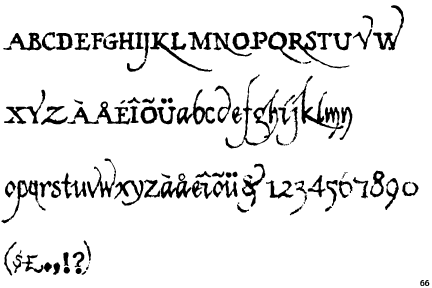 ABCDEFGHIJKLMNOPQRSTUVW
XYZÀÅÉÎÕÜabcdefghijklmn
opqrstuvwxyzàåéîõü&1234567890
($£.,!?)
66